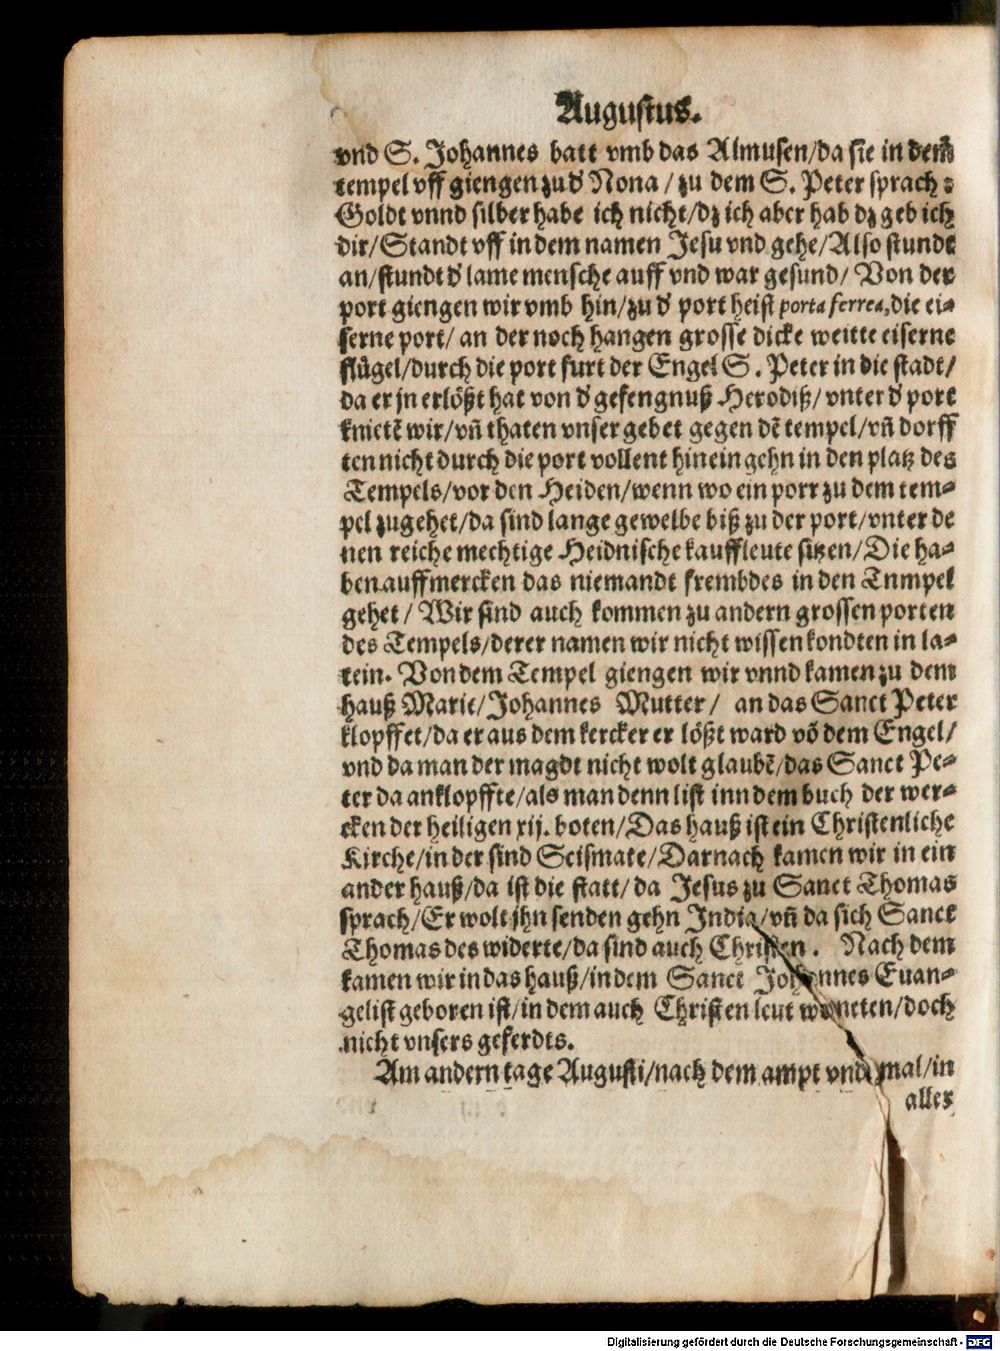 Augustus.
vnd S. Johannes batt vmb das Almusen/da sie in dem
tempel vff giengen zu d' Nona / zu dem S. Peter sprach:
Goldt vnnd silber habe ich nicht/dz ich aber hab dz geb ich
dir/Standt vff in dem namen Jesu vnd gehe/Also stundt
an/stundt d' lame mensche auff vnd war gesund/ Von der
port giengen wir vmb hin/zu d' port heist porta ferrea,die ei⸗
serne port/ an der noch hangen grosse dicke weitte eiserne
flügel/durch die port furt der Engel S. Peter in die stadt/
da er jn erlößt hat von d' gefengnuß Herodiß/ vnter d' port
knietē wir/vñ thaten vnser gebet gegen dē tempel/vñ dorff
ten nicht durch die port vollent hinein gehn in den platz des
Tempels/vor den Heiden/wenn wo ein porr zu dem tem⸗
pel zugehet/da sind lange gewelbe biß zu der port/vnter de
nen reiche mechtige Heidnische kauffleute sitzen/Die ha⸗
ben auffmercken das niemandt frembdes in den Tnmpel
gehet/ Wir sind auch kommen zu andern grossen porten
des Tempels/derer namen wir nicht wissen kondten in la⸗
tein. Von dem Tempel giengen wir vnnd kamen zu dem
hauß Marie/Johannes Mutter/ an das Sanct Peter
klopffet/da er aus dem kercker er lößt ward vō dem Engel/
vnd da man der magdt nicht wolt glaubē/das Sanct Pe⸗
ter da anklopffte/als man denn list inn dem buch der wer⸗
cken der heiligen xij. boten/Das hauß ist ein Christenliche
Kirche/in der sind Scismate/Darnach kamen wir in ein
ander hauß/da ist die statt/ da Jesus zu Sanct Thomas
sprach/Er wolt jhn senden gehn India/vñ da sich Sanct
Thomas des widerte/da sind auch Christen. Nach dem
kamen wir in das hauß/in dem Sanct Johannes Euan⸗
gelist geboren ist/in dem auch Christen leut woneten/doch
nicht vnsers geferdts.
Am andern tage Augusti/nach dem ampt vnd mal/in
aller
Digitalisierung gefördert durch die Deutsche Forschungsgemeinschaft - DFG